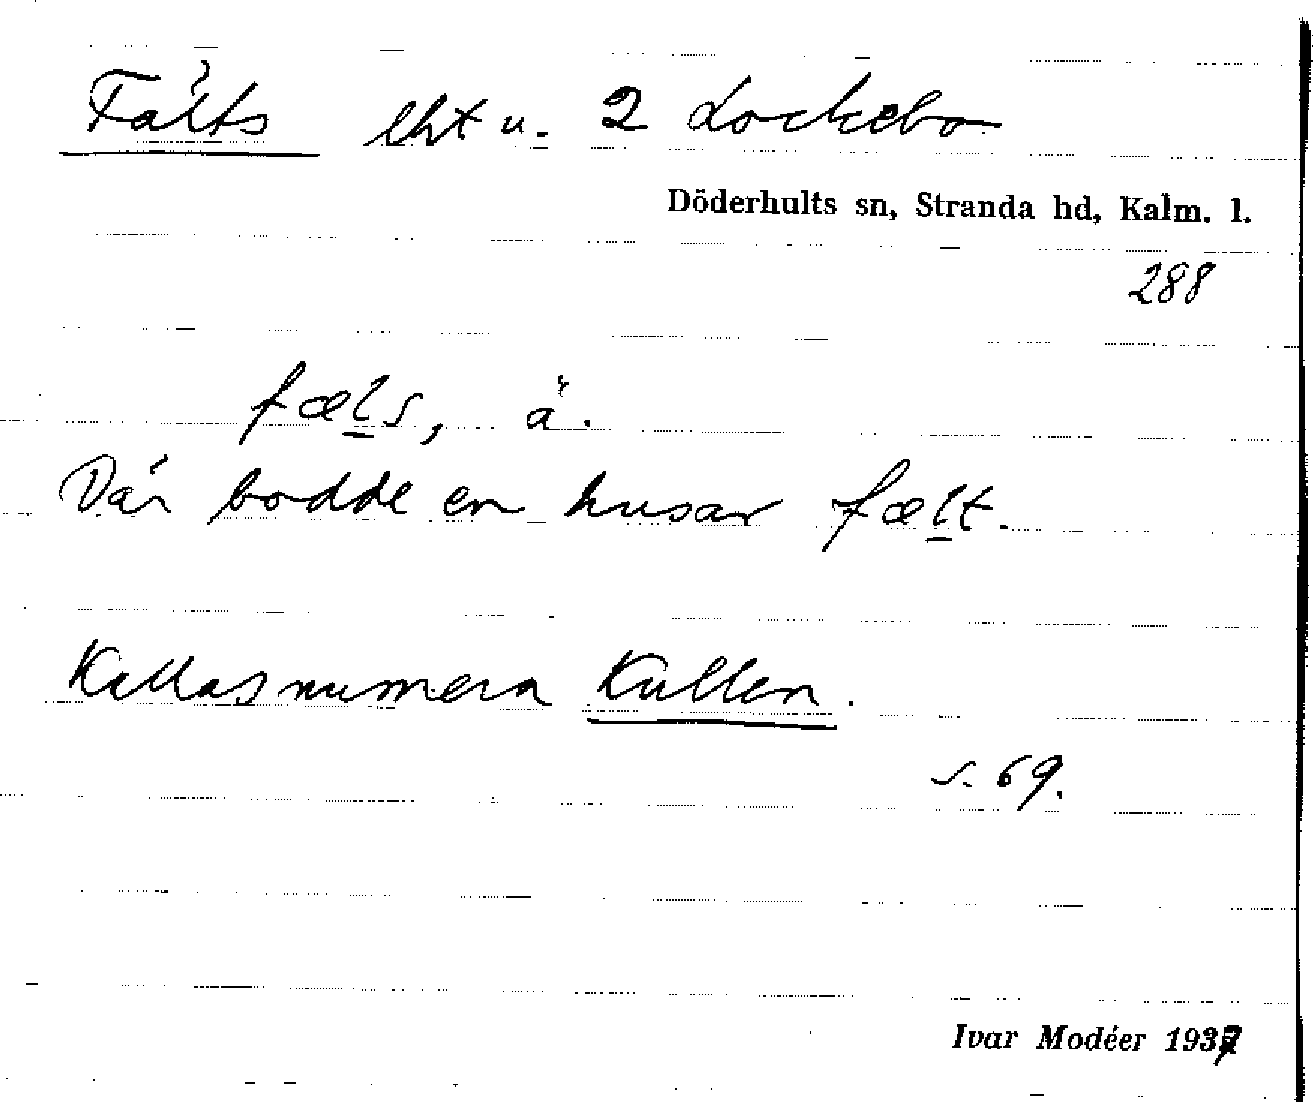 Fälts lht u. 2 Lockebo
Döderhults sn, Stranda hd, Kalm. l.
288
fæls, ä.
Där bodde en husar fælt.
Kallas numera Kullen.
s. 69.
Ivar Modéer 1937